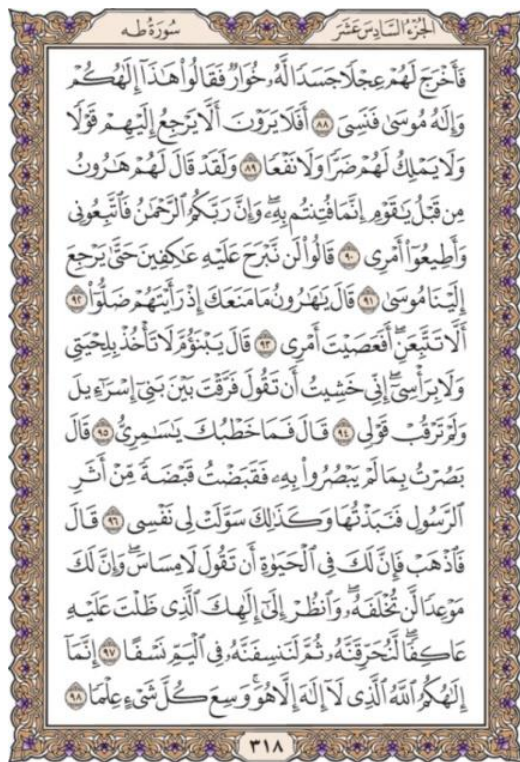 سُورَةُ طه
الجُزْءُ السَّادِسَ عَشَرَ
فَأَخْرَجَ لَهُمْ عِجْلًا جَسَدًا لَّهُۥ خُوَارٌ فَقَالُوا۟ هَٰذَآ إِلَٰهُكُمْ
وَإِلَٰهُ مُوسَىٰ فَنَسِىَ ٨٨ أَفَلَا يَرَوْنَ أَلَّا يَرْجِعُ إِلَيْهِمْ قَوْلًا
وَلَا يَمْلِكُ لَهُمْ ضَرًّا وَلَا نَفْعًا ٨٩ وَلَقَدْ قَالَ لَهُمْ هَٰرُونُ
مِن قَبْلُ يَٰقَوْمِ إِنَّمَا فُتِنتُم بِهِۦۖ وَإِنَّ رَبَّكُمُ ٱلرَّحْمَٰنُ فَٱتَّبِعُونِى
وَأَطِيعُوٓا۟ أَمْرِى ٩٠ قَالُوا۟ لَن نَّبْرَحَ عَلَيْهِ عَٰكِفِينَ حَتَّىٰ يَرْجِعَ
إِلَيْنَا مُوسَىٰ ٩١ قَالَ يَٰهَٰرُونُ مَا مَنَعَكَ إِذْ رَأَيْتَهُمْ ضَلُّوٓا۟ ٩٢
أَلَّا تَتَّبِعَنِۖ أَفَعَصَيْتَ أَمْرِى ٩٣ قَالَ يَبْنَؤُمَّ لَا تَأْخُذْ بِلِحْيَتِى
وَلَا بِرَأْسِىٓۖ إِنِّى خَشِيتُ أَن تَقُولَ فَرَّقْتَ بَيْنَ بَنِىٓ إِسْرَٰٓءِيلَ
وَلَمْ تَرْقُبْ قَوْلِى ٩٤ قَالَ فَمَا خَطْبُكَ يَٰسَٰمِرِىُّ ٩٥ قَالَ
بَصُرْتُ بِمَا لَمْ يَبْصُرُوا۟ بِهِۦ فَقَبَضْتُ قَبْضَةً مِّنْ أَثَرِ
ٱلرَّسُولِ فَنَبَذْتُهَا وَكَذَٰلِكَ سَوَّلَتْ لِى نَفْسِى ٩٦ قَالَ
فَٱذْهَبْ فَإِنَّ لَكَ فِى ٱلْحَيَوٰةِ أَن تَقُولَ لَا مِسَاسَۖ وَإِنَّ لَكَ
مَوْعِدًا لَّن تُخْلَفَهُۥۖ وَٱنظُرْ إِلَىٰٓ إِلَٰهِكَ ٱلَّذِى ظَلْتَ عَلَيْهِ
عَاكِفًاۖ لَّنُحَرِّقَنَّهُۥ ثُمَّ لَنَنسِفَنَّهُۥ فِى ٱلْيَمِّ نَسْفًا ٩٧ إِنَّمَآ
إِلَٰهُكُمُ ٱللَّهُ ٱلَّذِى لَآ إِلَٰهَ إِلَّا هُوَۚ وَسِعَ كُلَّ شَىْءٍ عِلْمًا ٩٨
٣١٨